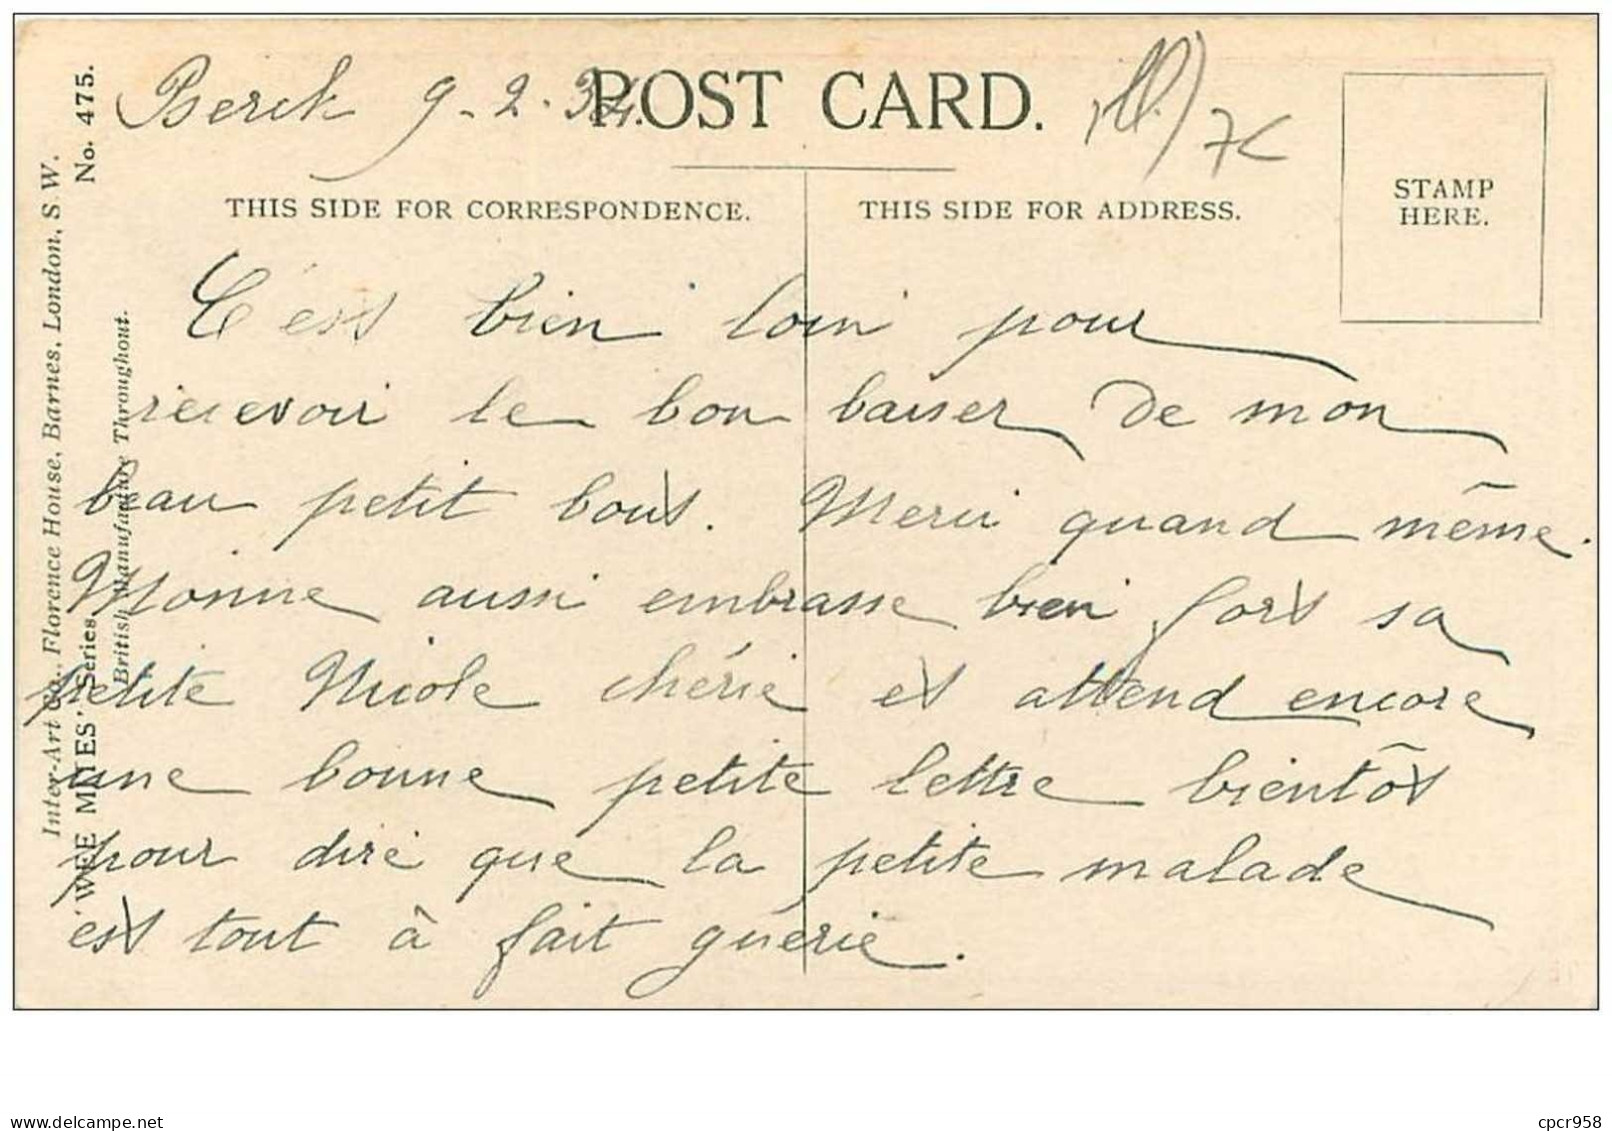 Berck 9-2-34.
POST CARD.
7€
THIS SIDE FOR CORRESPONDENCE.
THIS SIDE FOR ADDRESS.
STAMP
HERE.
C'est bien loin pour
recevoir le bon baiser de mon
beau petit bout. Merci quand même.
Monne aussi embrasse bien fort sa
petite Nicole chérie et attend encore
une bonne petite lettre bientôt
pour dire que la petite malade
est tout à fait guérie.
Inter-Art Co., Florence House, Barnes, London, S W.
'WEE MITES' Series, No. 475.
British Manufacture Throughout.
www.delcampe.net
cpcr958